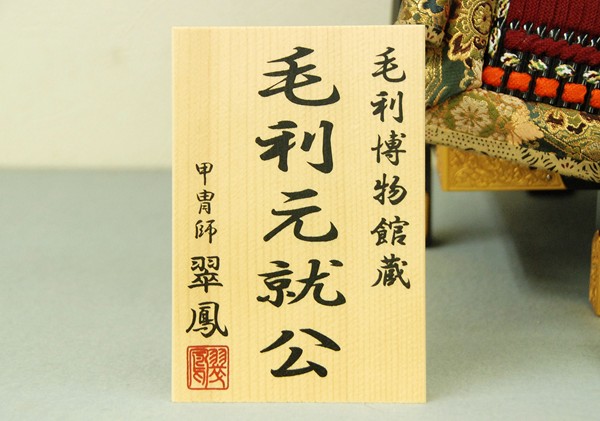 毛利博物館蔵
毛利元就公
甲冑師 翠鳳